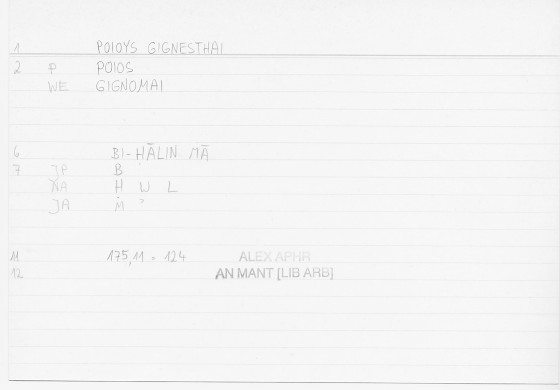 1 POIOYS GIGNESTHAI
2 P POIOS
WE GIGNOMAI
6 BI-ḤĀLIN MĀ
7 JP B
NA H W L
JA M ʾ
11 175,11 = 124 ALEX APHR
12 AN MANT [LIB ARB]